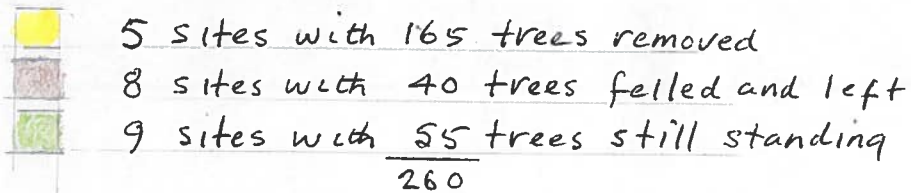 5 sites with 165 trees removed
8 sites with 40 trees felled and left
9 sites with 55 trees still standing
260